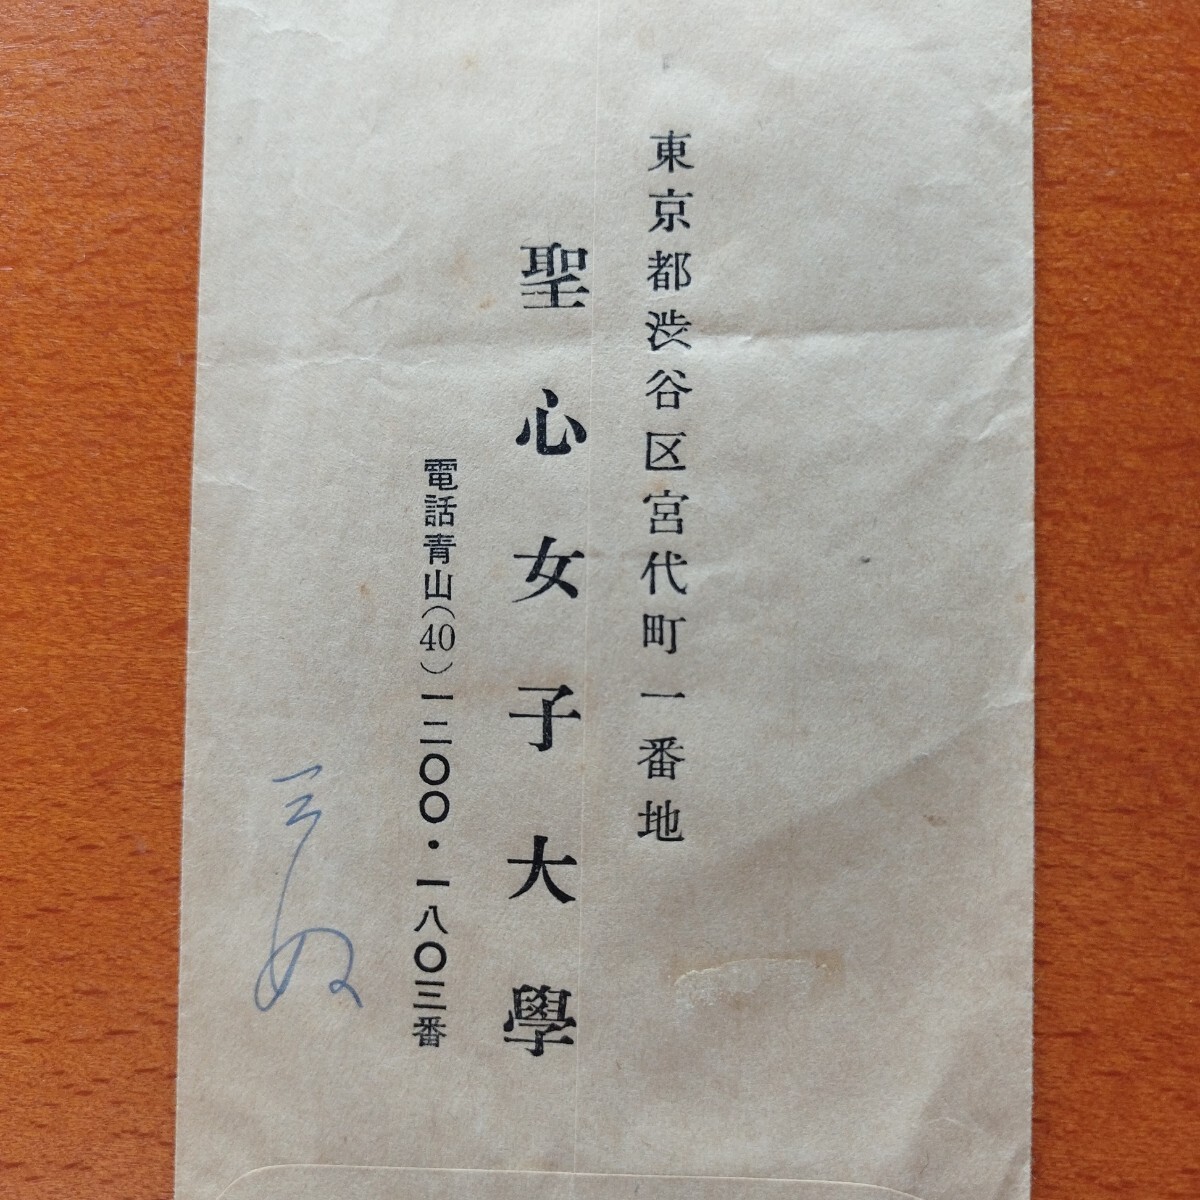 東京都渋谷区宮代町一番地
聖心女子大學
電話青山(40)一二〇〇・一八〇三番